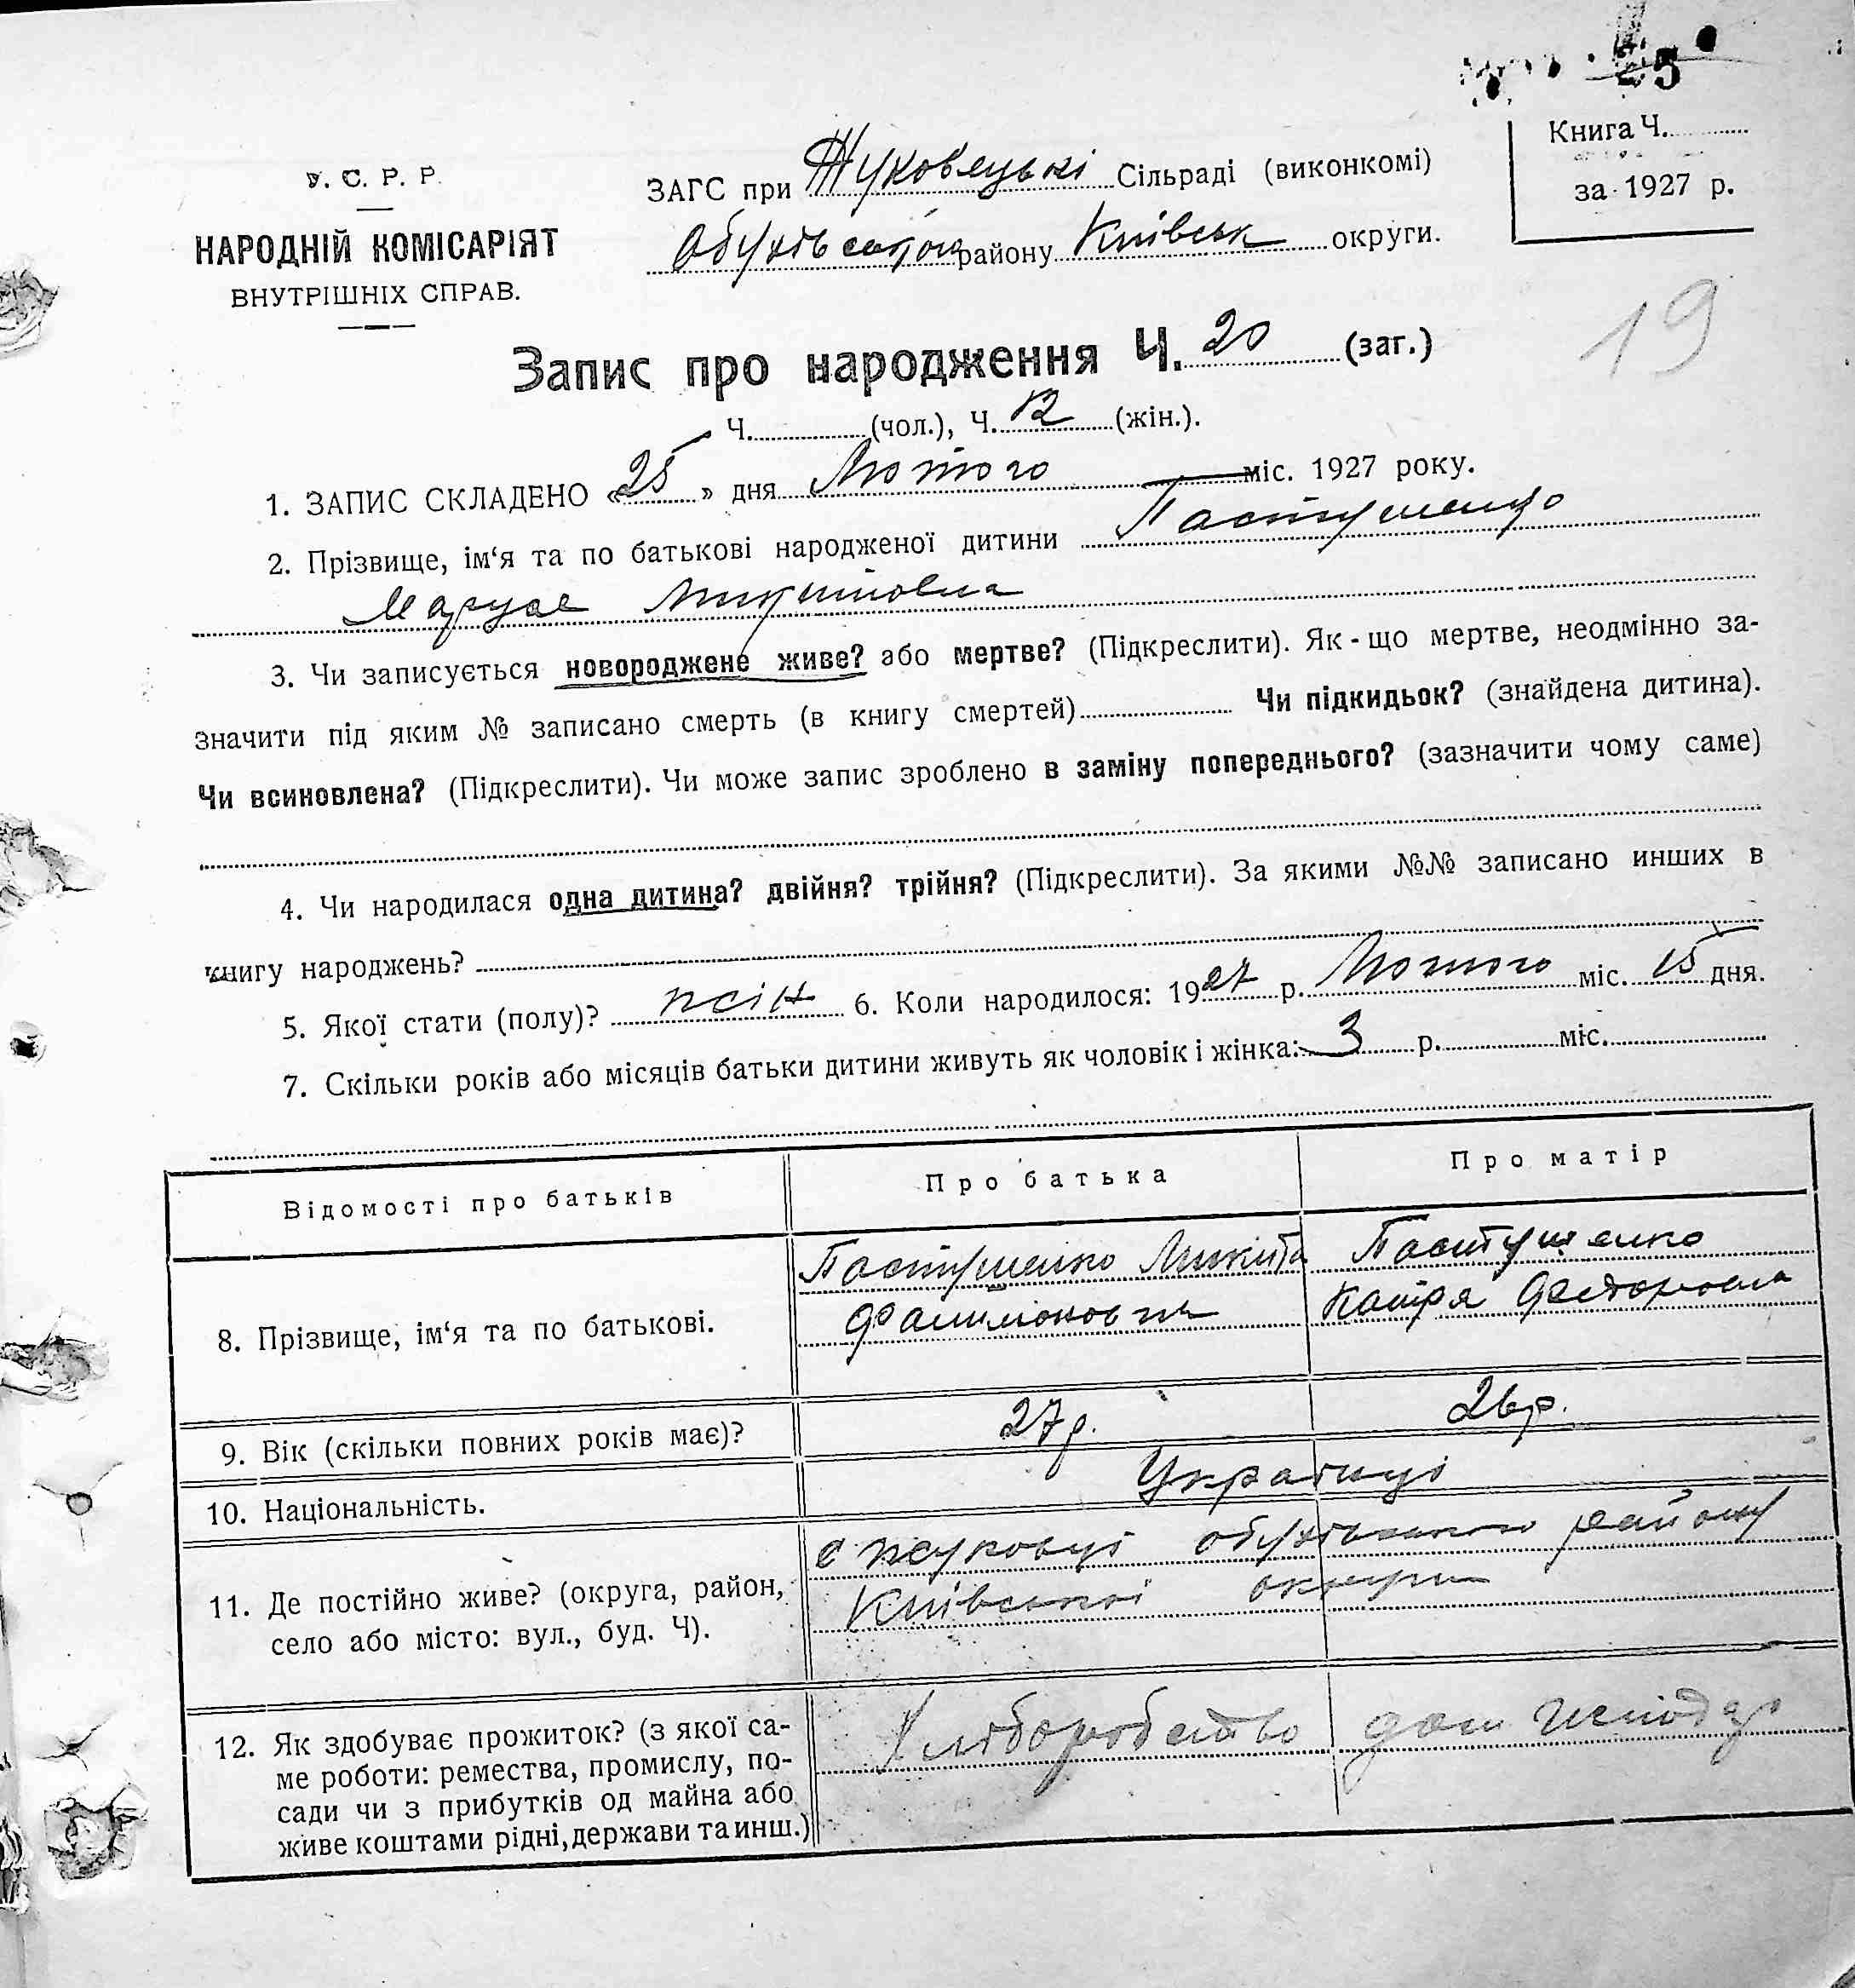 5
Книга Ч.
за 1927 р.
У. С. Р. Р.
НАРОДНІЙ КОМІСАРІЯТ
ВНУТРІШНІХ СПРАВ.
ЗАГС при Жуковецькі Сільраді (виконкомі)
Обухівського району Київськ округи.
19
Запис про народження Ч. 20 (заг.)
Ч. (чол.), Ч. 12 (жін.).
1. ЗАПИС СКЛАДЕНО «25» дня Лютого міс. 1927 року.
2. Прізвище, ім‘я та по батькові народженої дитини Пастушенко
Маруся Микитовна
3. Чи записується новороджене живе? або мертве? (Підкреслити). Як - що мертве, неодмінно за-
значити під яким № записано смерть (в книгу смертей) Чи підкидьок? (знайдена дитина).
Чи всиновлена? (Підкреслити). Чи може запис зроблено в заміну попереднього? (зазначити чому саме)
4. Чи народилася одна дитина? двійня? трійня? (Підкреслити). За якими №№ записано инших в
книгу народжень?
5. Якої стати (полу)? жін 6. Коли народилося: 1927 р. Лютого міс. 15 дня.
7. Скільки років або місяців батьки дитини живуть як чоловік і жінка: 3 р. міс.
Відомості про батьків Про батька Про матір
8. Прізвище, ім‘я та по батькові. Пастушенко Микита Пастушенко
Филимонович Катря Федоровна
9. Вік (скільки повних років має)? 27 р. 26 р.
10. Національність. Українці
11. Де постійно живе? (округа, район, с Жуковці обухівського району
село або місто: вул., буд. Ч). Київської округи
12. Як здобуває прожиток? (з якої са- Хліборобство дом господар
ме роботи: ремества, промислу, по-
сади чи з прибутків од майна або
живе коштами рідні, держави та инш.)